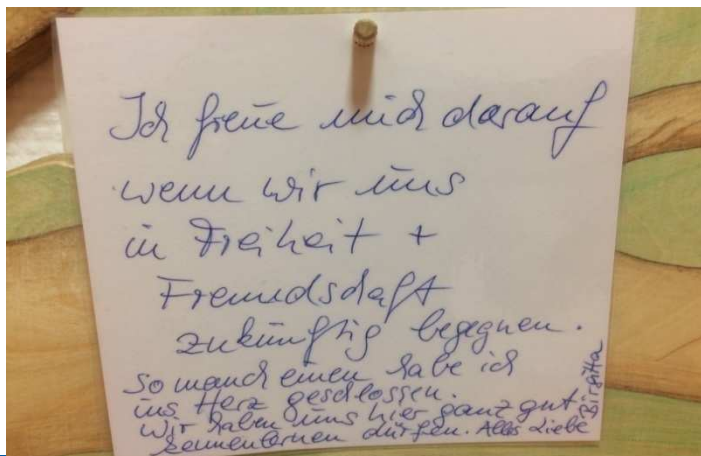 Ich freue mich darauf
wenn wir uns
in Freiheit +
Freundschaft
zukünftig begegnen.
so manch einen habe ich
ins Herz geschlossen.
Wir haben uns hier ganz gut
kennenlernen dürfen. Alles Liebe
Birgitta